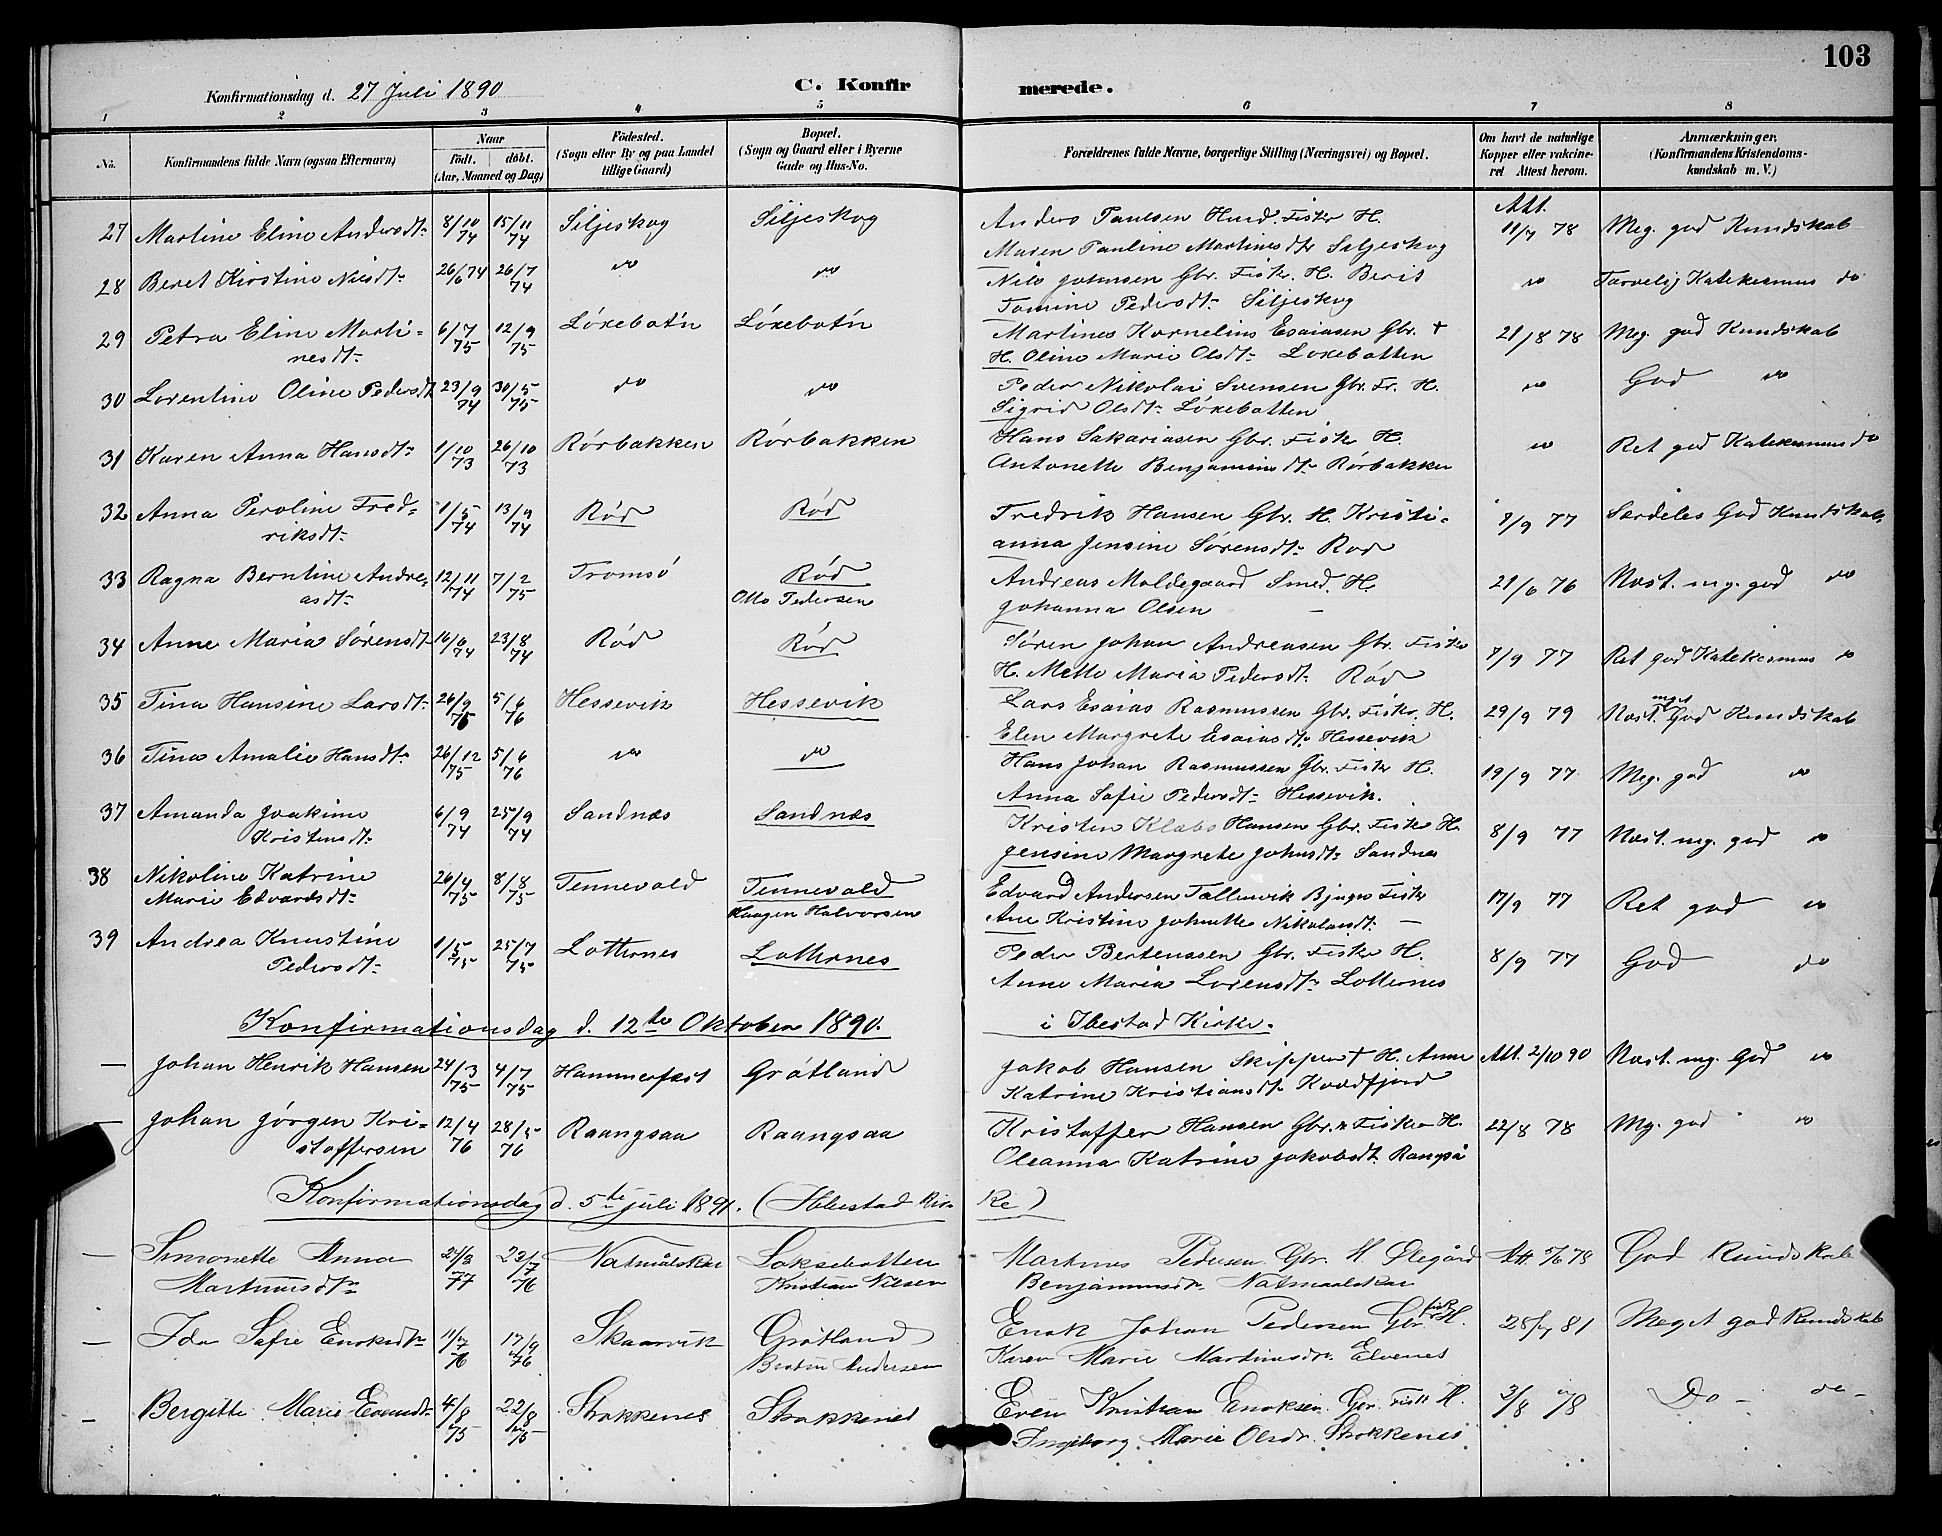 103
Konfirmationsdag d. 27 Juli 1890 C. Konfirmerede.
1 2 3 4 5 6 7 8
No. Konfirmandens fulde Navn (ogsaa Efternavn) Naar født. døbt. (Aar, Maaned og Dag) Fødested. (Sogn eller By og paa Landet tillige Gaard) Bopæl. (Sogn og Gaard eller i Byerne Gade og Hus-No. Forældrenes fulde Navne, borgerlige Stilling (Næringsvei) og Bopæl. Om havt de naturlige Kopper eller vakcineret Attest herom. Anmærkninger. (Konfirmandens Kristendomskundskab m. V.)
27 Martine Eline Andersdt. 8/10 74 15/11 74 Siljeskog Siljeskog Anders Paulsen Hmd Fisker H. Att. 11/7 78 Meg. god Kundskab
Maren Pauline Martinesdtr Siljeskog
28 Beret Kirstine Nilsdt. 26/6 74 26/7 74 do do Nils Johnsen Gbr. Fisker. H. Berit do Tarvelig Katekesmus do
Tomine Pedersdt. Siljeskog
29 Petra Eline Marti- 6/7 75 12/9 75 Löxebotn Löxebotn Martines Kornelius Esaiasen Gbr. + 21/8 78 Meg. god Kundskab
nesdt. H. Oline Marie Olsdt. Loxebotten
30 Lorentine Oline Pedersdt 23/9 74 30/5 75 do do Peder Nikolai Svensen Gbr. Fr. H. do God do
Sigrid Olsdt. Löxebotten
31 Karen Anna Hansdt. 1/10 73 26/10 73 Rörbakken Rörbakken Hans Sakariasen Gbr. Fisker H. do Ret god Katekesmus do
Antonette Benjaminsdt. Rörbakken
32 Anna Peroline Fred- 1/5 74 13/9 74 Röd Röd Fredrik Hansen Gbr. H. Kristi- 7/9 77 Særdeles God Kundskab
riksdt. anna Jensine Sörensdt. Rod
33 Ragna Berntine Andre- 12/11 74 7/2 75 Tromsö Röd Andreas Moldegaard Smed. H. 21/6 76 Næst. mg. god do
asdt. Otto Pedersen Johanna Olsen –
34 Anne Maria Sörensdt. 16/6 74 23/8 74 Röd Röd Sören Johan Andreasen Gbr. Fisker 7/9 77 Ret god Katekesmus do
H. Mette Maria Pedersdt. Röd
35 Tina Hansine Larsdt. 26/9 75 5/6 76 Hessevik Hessevik Lars Esaias Rasmussen Gbr. Fisker. H. 29/9 79 Næst. meget God Kundskab
Elen Margrete Esaiasdt. Hessevik
36 Tina Amalie Hansdt. 26/12 75 5/6 76 do do Hans Johan Rasmussen Gbr. Fisker H. 19/9 77 Meg. god do
Anna Safie Pedersdt. Hessevik.
37 Amanda Joakime 6/9 74 25/9 74 Sandnæs Sandnæs Kristen Klabo Hansen Gbr. Fisker H. 8/9 77 Næst. mg. god do
Kristensdt. Jensine Margrete Johnsdt. Sandnæs
38 Nikoline Katrine 26/4 75 8/8 75 Tennevold Tennevold Edvard Andersen Tallervik Fisker 17/9 77 Ret god do
Marie Edvardsdt. Haagen Halvorsen Ane Kristine Johnette Nikolaisdt. –
39 Andrea Knustine 1/5 75 25/7 75 Lotternes Lotternes Peder Bertenssen Gbr. Fisker H. 8/9 77 God do
Pedersdt. Anne Maria Lorensdt. Lotternes
Konfirmationsdag d. 12te Oktober 1890. i Ibestad Kirke.
– Johan Henrik Hansen 24/3 75 4/7 75 Hammerfest Gråtland Jakob Hansen Skipper + H. Anne Att. 2/10 90 Næst. mg. God do
Katrine Kristiansdt. Kvædfjord
– Johan Jörgen Kri- 12/4 76 28/5 76 Raangsaa Raangsaa Kristoffer Hansen Gbr. & Fisker H. 22/8 78 Mg. god do
stoffersen Oleanna Katrine Jakobsdt. Rangså
Konfirmationsdag d. 5te juli 1891. (Ibestad Kirke)
– Simonette Anna 77 23/7 76 Natmålskar Loksebotten Martines Pedersen Gbr. H. Ølegård Att. 5/6 78 God Kundskab
Martinusdtr Kristian Nilsen Benjaminsdtr Natmaalskar
– Ida Safie Enoksdtr 11/7 76 17/9 76 Skaarvik Gråtland Enok Johan Pedersen Gbr. fisk. H. 28/7 81 Meget god Kundskab
Bertin Andersen Karen Marie Martinsdr. Elvenes
– Bergitte Marie Evensdtr 4/8 75 22/8 75 Stokkenes Stokkenes Even Kristian Enoksen Gbr. Fisk H. 3/8 78 Do – do –
Ingeborg Marie Olsdr. Stokkenes